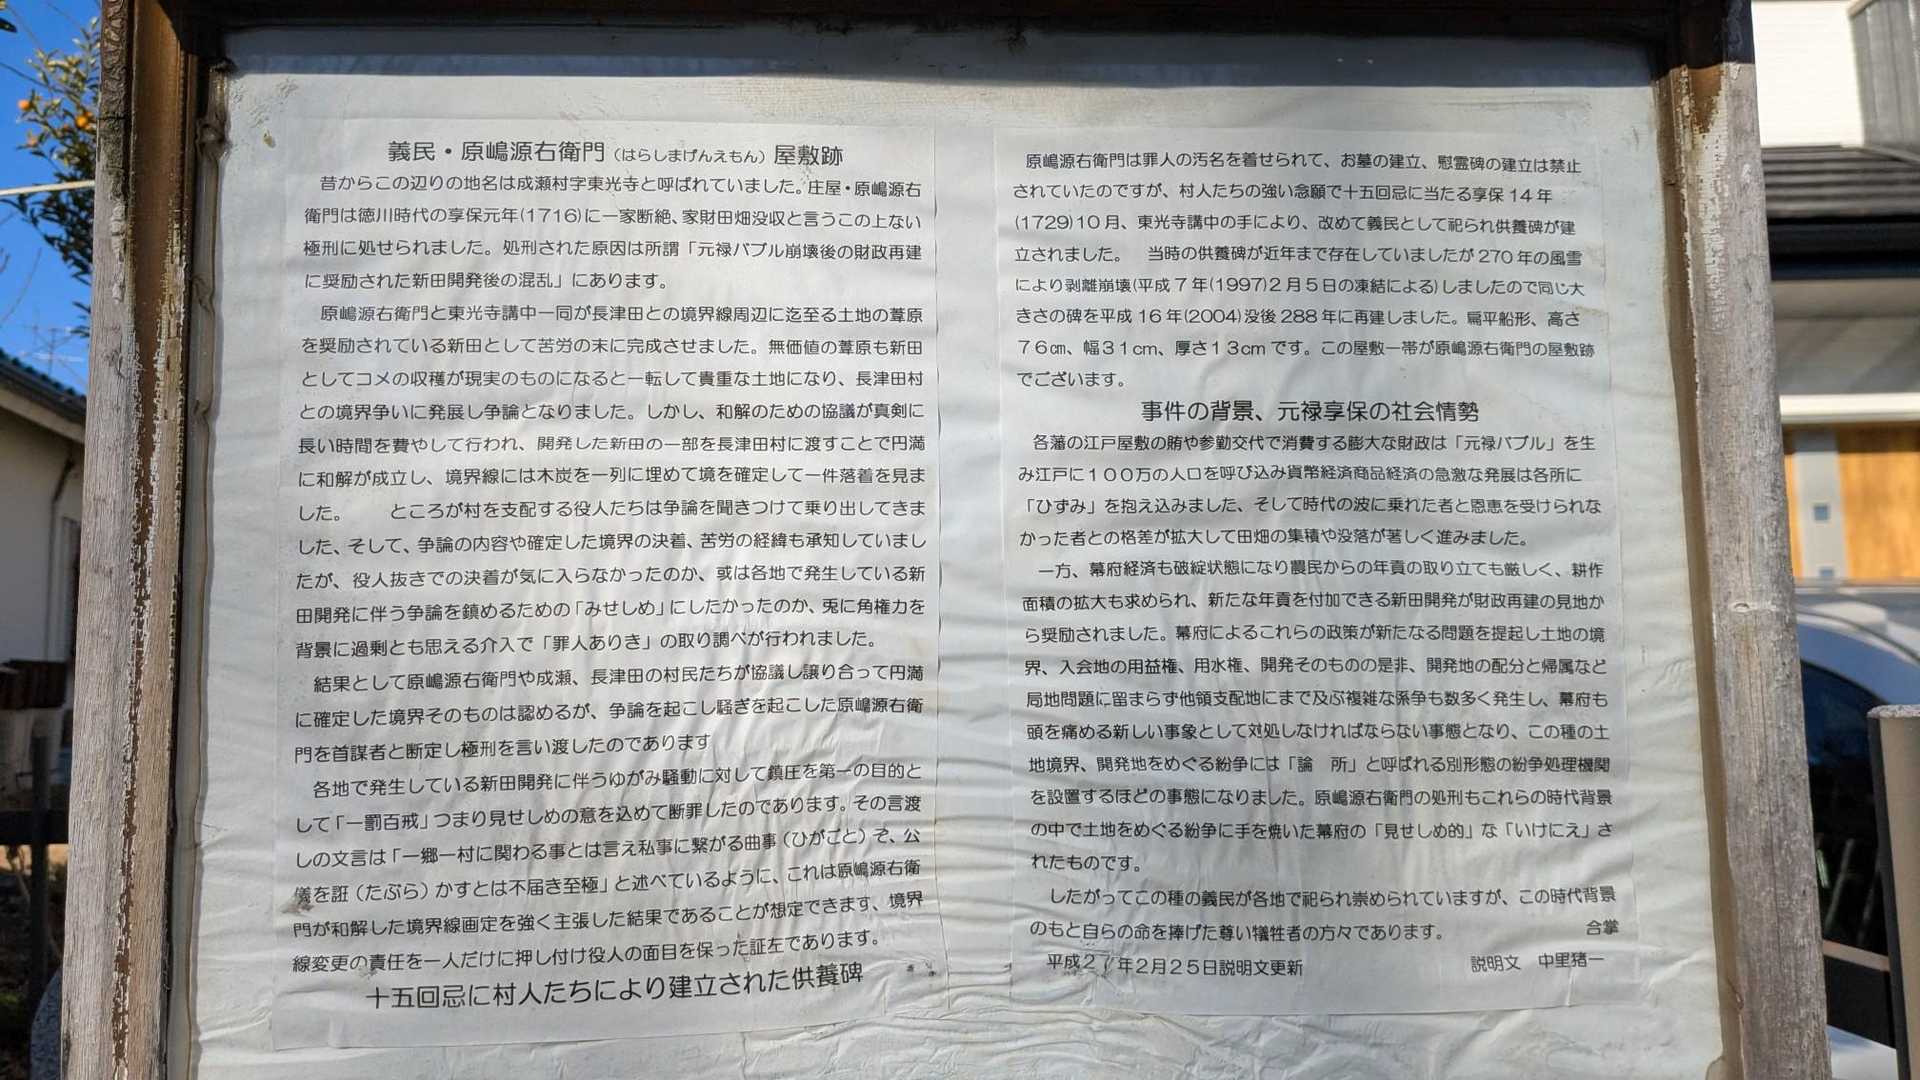 義民・原嶋源右衛門（はらしまげんえもん）屋敷跡
昔からこの辺りの地名は成瀬村字東光寺と呼ばれていました。庄屋・原嶋源右
衛門は徳川時代の享保元年(1716)に一家断絶、家財田畑没収と言うこの上ない
極刑に処せられました。処刑された原因は所謂「元禄バブル崩壊後の財政再建
に奨励された新田開発後の混乱」にあります。
原嶋源右衛門と東光寺講中一同が長津田との境界線周辺に迄至る土地の葦原
を奨励されている新田として苦労の末に完成させました。無価値の葦原も新田
としてコメの収穫が現実のものになると一転して貴重な土地になり、長津田村
との境界争いに発展し争論となりました。しかし、和解のための協議が真剣に
長い時間を費やして行われ、開発した新田の一部を長津田村に渡すことで円満
に和解が成立し、境界線には木炭を一列に埋めて境を確定して一件落着を見ま
した。　　ところが村を支配する役人たちは争論を聞きつけて乗り出してきま
した、そして、争論の内容や確定した境界の決着、苦労の経緯も承知していまし
たが、役人抜きでの決着が気に入らなかったのか、或は各地で発生している新
田開発に伴う争論を鎮めるための「みせしめ」にしたかったのか、兎に角権力を
背景に過剰とも思える介入で「罪人ありき」の取り調べが行われました。
結果として原嶋源右衛門や成瀬、長津田の村民たちが協議し譲り合って円満
に確定した境界そのものは認めるが、争論を起こし騒ぎを起こした原嶋源右衛
門を首謀者と断定し極刑を言い渡したのであります
各地で発生している新田開発に伴うゆがみ騒動に対して鎮圧を第一の目的と
して「一罰百戒」つまり見せしめの意を込めて断罪したのであります。その言渡
しの文言は「一郷一村に関わる事とは言え私事に繋がる曲事（ひがごと）ぞ、公
儀を誑（たぶら）かすとは不届き至極」と述べているように、これは原嶋源右衛
門が和解した境界線画定を強く主張した結果であることが想定できます、境界
線変更の責任を一人だけに押し付け役人の面目を保った証左であります。
十五回忌に村人たちにより建立された供養碑
原嶋源右衛門は罪人の汚名を着せられて、お墓の建立、慰霊碑の建立は禁止
されていたのですが、村人たちの強い念願で十五回忌に当たる享保14年
(1729)10月、東光寺講中の手により、改めて義民として祀られ供養碑が建
立されました。　当時の供養碑が近年まで存在していましたが270年の風雪
により剥離崩壊(平成７年(1997)2月５日の凍結による)しましたので同じ大
きさの碑を平成16年(2004)没後288年に再建しました。扁平船形、高さ
７６㎝、幅３１cm、厚さ１３cmです。この屋敷一帯が原嶋源右衛門の屋敷跡
でございます。
事件の背景、元禄享保の社会情勢
各藩の江戸屋敷の賄や参勤交代で消費する膨大な財政は「元禄バブル」を生
み江戸に１００万の人口を呼び込み貨幣経済商品経済の急激な発展は各所に
「ひずみ」を抱え込みました、そして時代の波に乗れた者と恩恵を受けられな
かった者との格差が拡大して田畑の集積や没落が著しく進みました。
一方、幕府経済も破綻状態になり農民からの年貢の取り立ても厳しく、耕作
面積の拡大も求められ、新たな年貢を付加できる新田開発が財政再建の見地か
ら奨励されました。幕府によるこれらの政策が新たなる問題を提起し土地の境
界、入会地の用益権、用水権、開発そのものの是非、開発地の配分と帰属など
局地問題に留まらず他領支配地にまで及ぶ複雑な係争も数多く発生し、幕府も
頭を痛める新しい事象として対処しなければならない事態となり、この種の土
地境界、開発地をめぐる紛争には「論　所」と呼ばれる別形態の紛争処理機関
を設置するほどの事態になりました。原嶋源右衛門の処刑もこれらの時代背景
の中で土地をめぐる紛争に手を焼いた幕府の「見せしめ的」な「いけにえ」さ
れたものです。
したがってこの種の義民が各地で祀られ崇められていますが、この時代背景
のもと自らの命を捧げた尊い犠牲者の方々であります。　合掌
平成２７年２月２５日説明文更新　説明文　中里猪一